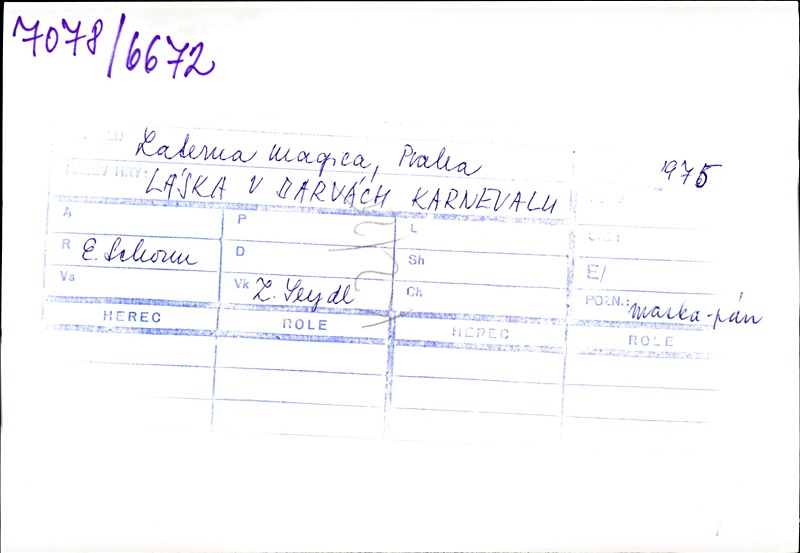 7078/6672
Laterna magica, Praha
1975
NÁZEV HRY: LÁSKA V BARVÁCH KARNEVALU
A P L
R E. Schorm D Sh E/
Vs Vk Z. Seydl Ch POZN.: maska-pán
HEREC ROLE HEREC ROLE